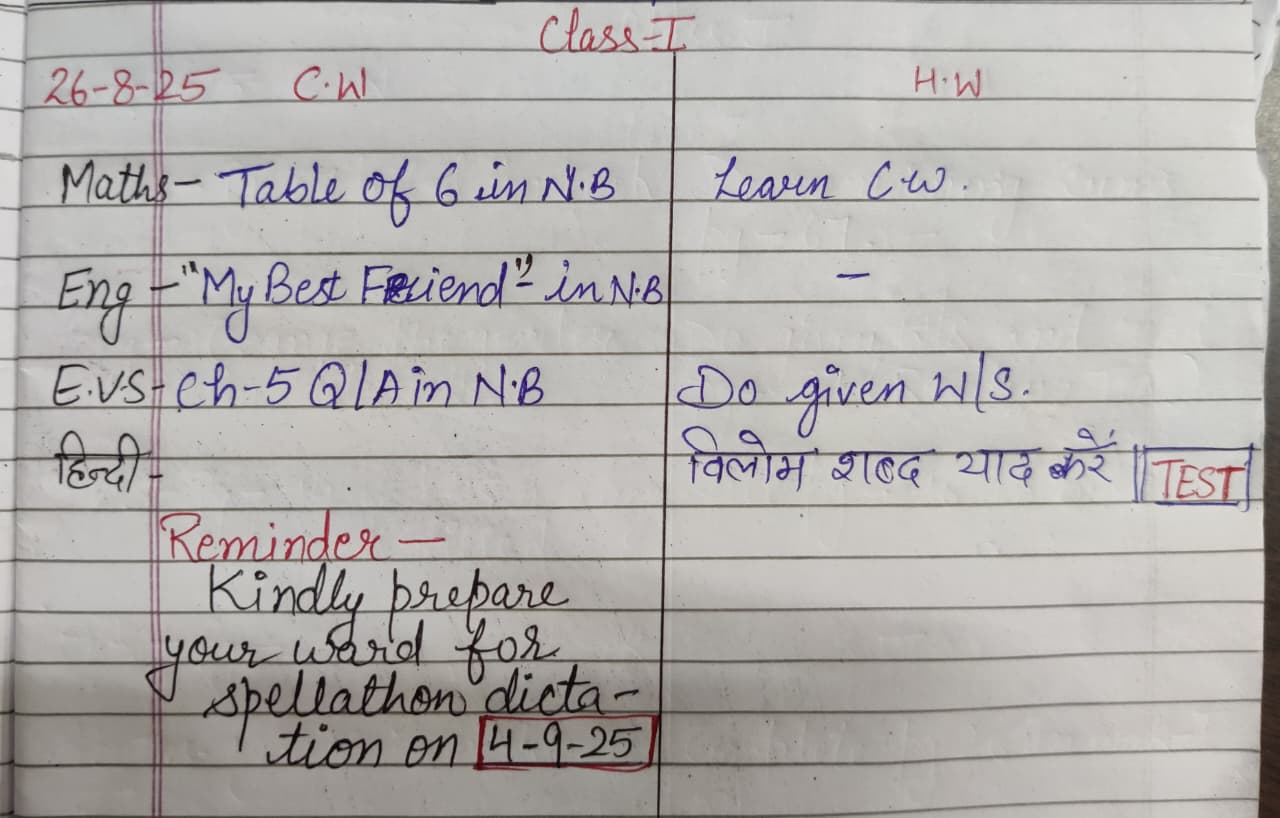 Class-I
26-8-25 C.W H.W
Maths- Table of 6 in N.B Learn C.W.
Eng - "My Best Friend" - in N.B -
E.V.S- Ch-5 Q/A in N.B Do given W/S.
हिन्दी- विलोम शब्द याद करें || TEST
Reminder -
Kindly prepare
your ward for
spellathon dicta-
tion on 4-9-25